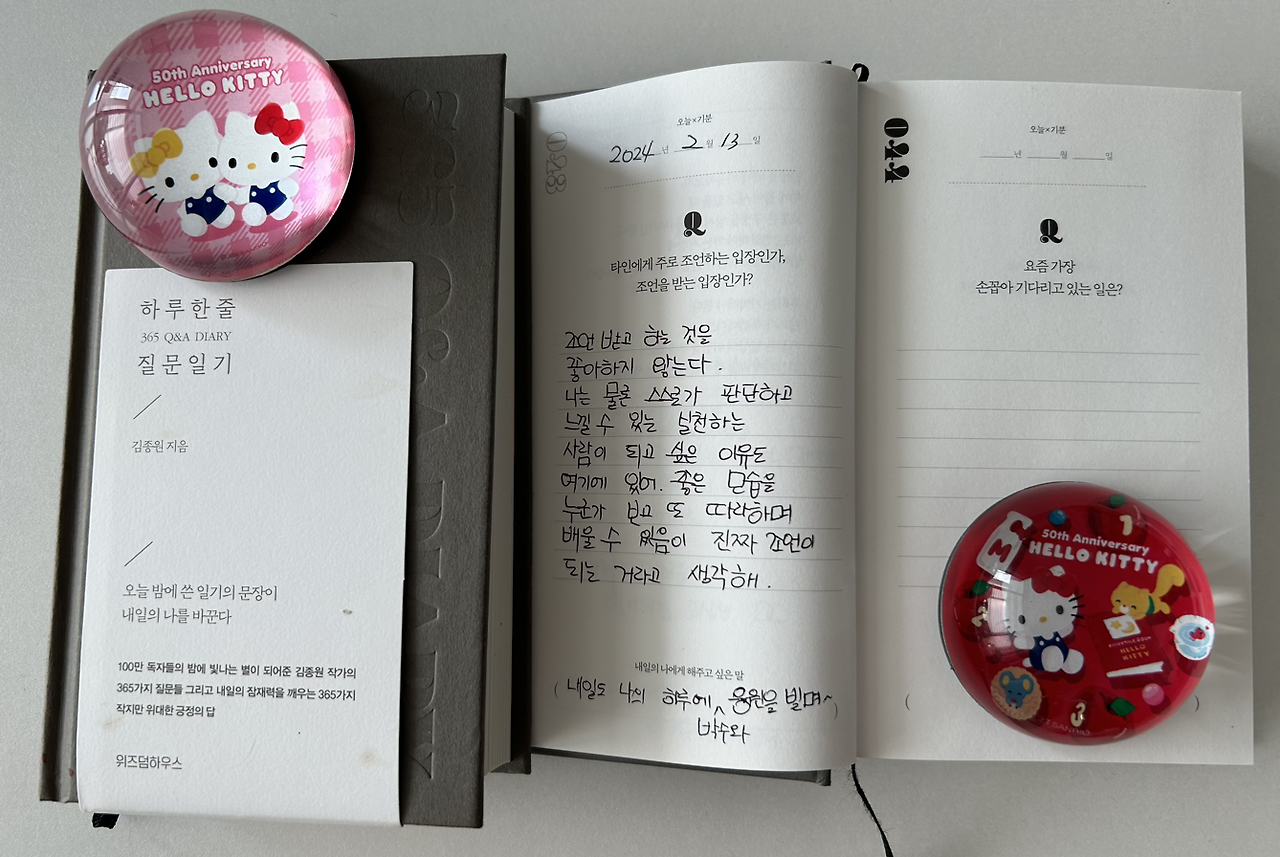 50th Anniversary
HELLO KITTY
365 Q&A DIARY
하루한줄
365 Q&A DIARY
질문일기
김종원 지음
오늘 밤에 쓴 일기의 문장이
내일의 나를 바꾼다
100만 독자들의 밤에 빛나는 별이 되어준 김종원 작가의
365가지 질문들 그리고 내일의 잠재력을 깨우는 365가지
작지만 위대한 긍정의 답
위즈덤하우스
043
오늘×기분
2024년 2월 13일
Q
타인에게 주로 조언하는 입장인가,
조언을 받는 입장인가?
조언 받고 하는 것을
좋아하지 않는다.
나는 물론 스스로가 판단하고
느낄 수 있는 실천하는
사람이 되고 싶은 이유도
여기에 있어. 좋은 모습을
누군가 보고 또 따라하며
배울 수 있음이 진짜 조언이
되는 거라고 생각해.
내일의 나에게 해주고 싶은 말
( 내일도 나의 하루에 응원을 빌며~ )
박수와
044
오늘×기분
년 월 일
Q
요즘 가장
손꼽아 기다리고 있는 일은?
50th Anniversary
HELLO KITTY
1
HELLO
KITTY
3
( )